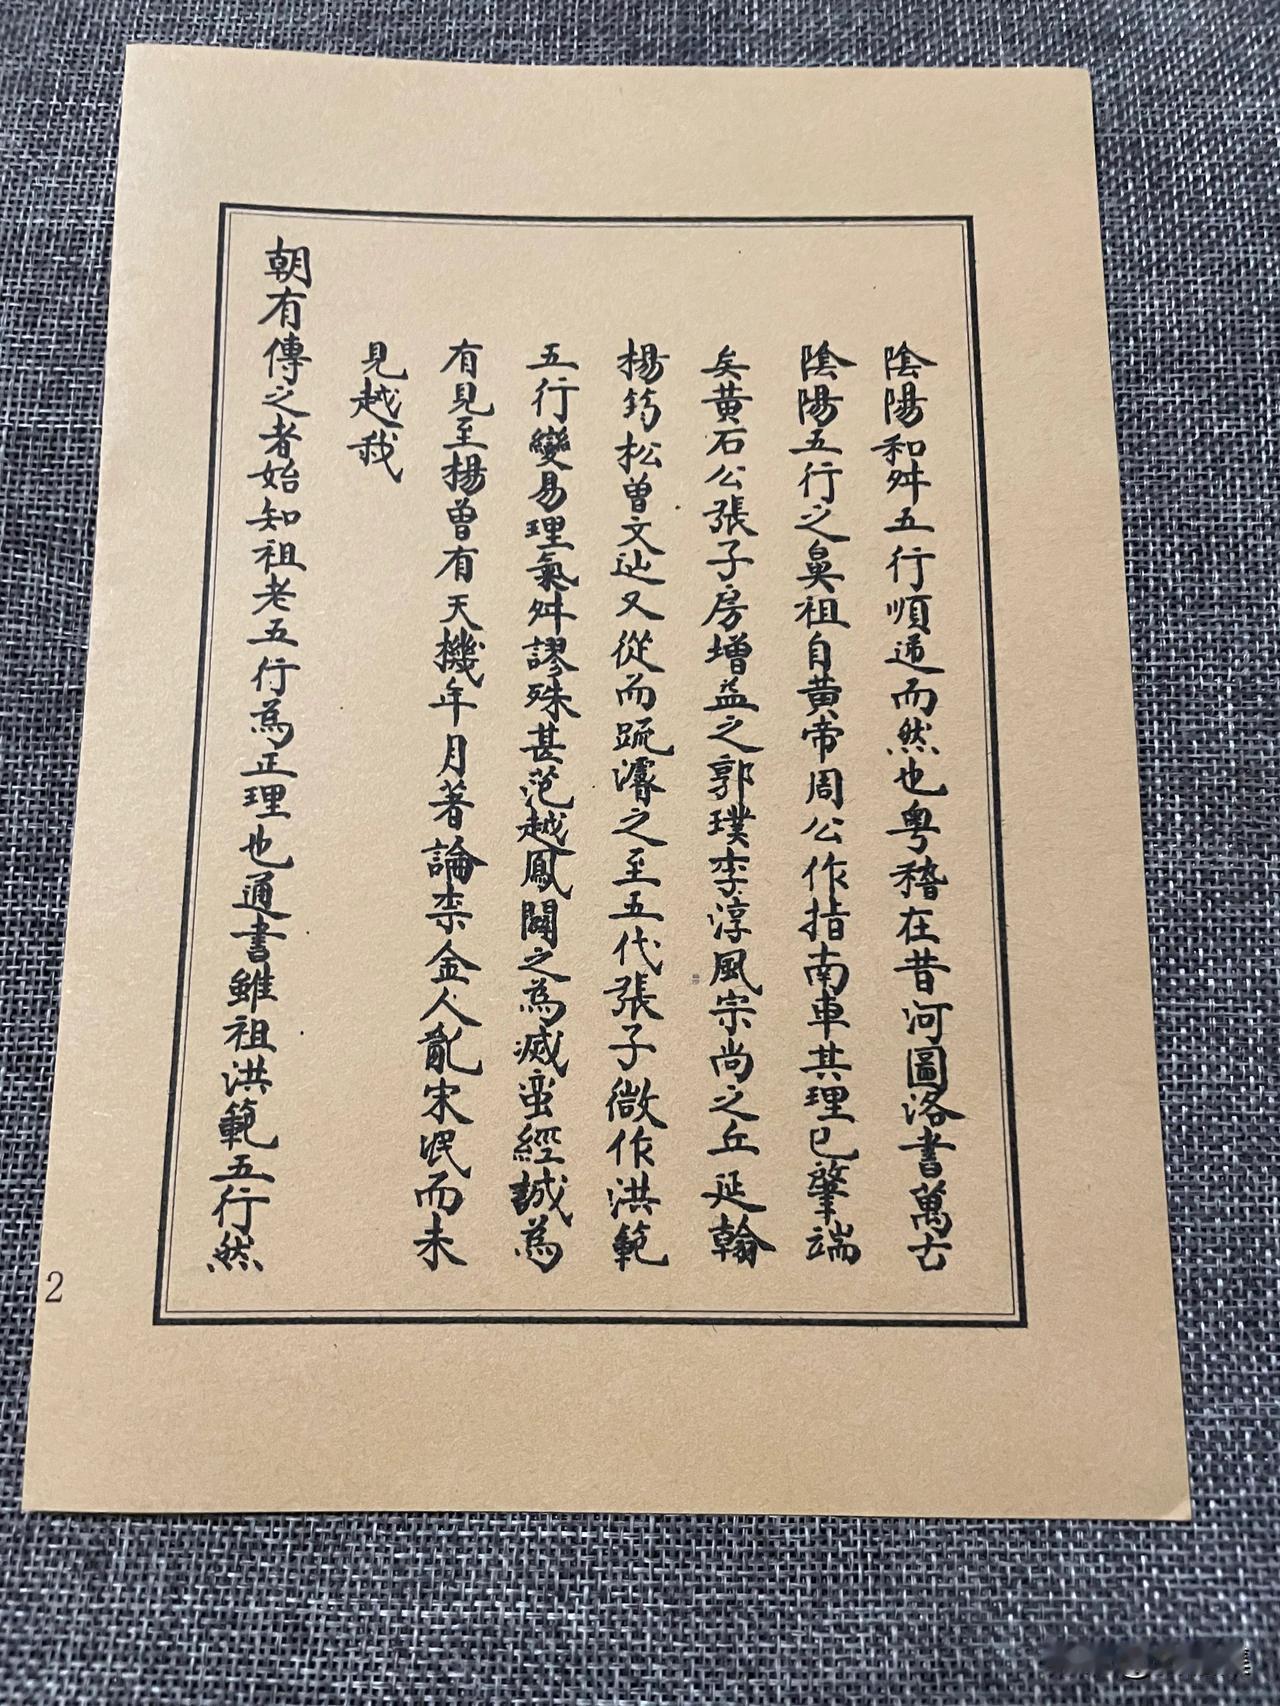 陰陽和舛五行順逓而然也粵稽在昔河圖洛書萬古
陰陽五行之鼻祖自黃帝周公作指南車其理已肇端
矣黃石公張子房增益之郭璞李淳風宗尚之丘延翰
楊筠松曾文辿又從而疏濬之至五代張子微作洪範
五行變易理氣舛謬殊甚范越鳳闢之為滅蛮經誠為
有見至楊曾有天機年月著論柰金人亂宋泯而未
見越我
朝有傳之者始知祖老五行為正理也通書雖祖洪範五行然
2